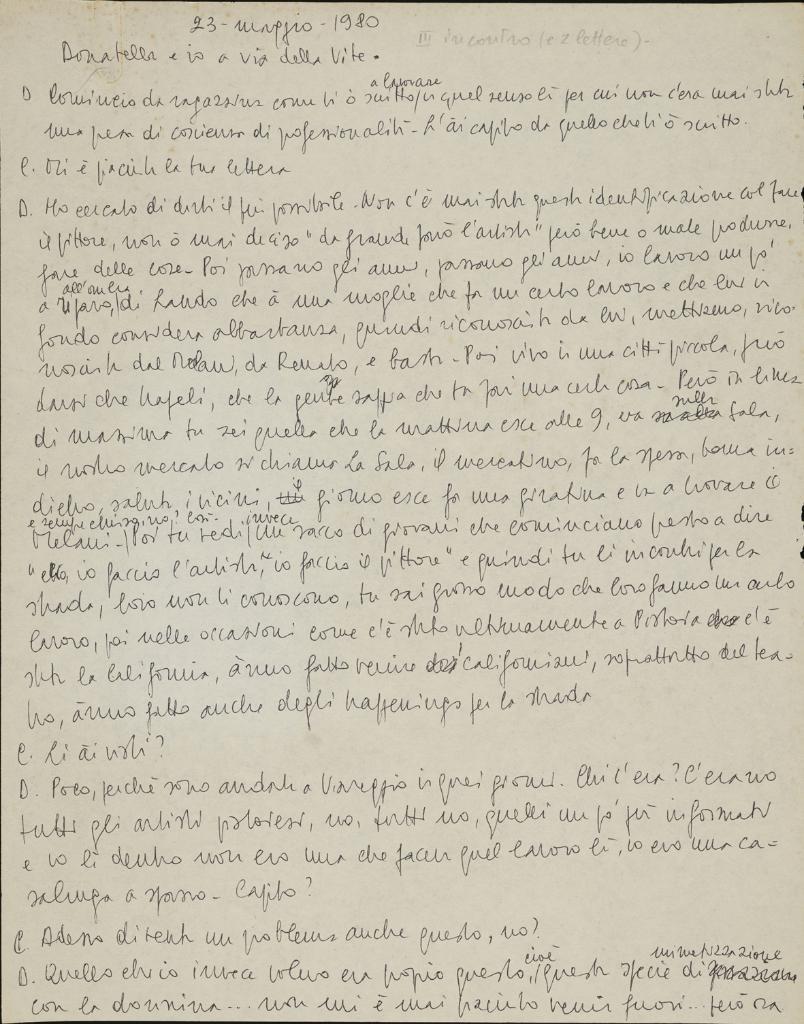 23 - maggio - 1980
III incontro (e 2 lettere) -
Donatella e io a via della Vite.
D Comincio da ragazzina come ti ò scritto, a lavorare in quel senso lì per cui non c'era mai stata
una presa di coscienza di professionalità - L'ài capito da quello che ti ò scritto.
C. Mi è piaciuta la tua lettera
D. Ho cercato di dirti il più possibile - Non c'è mai stata questa identificazione col fare
il pittore, non ò mai deciso "da grande farò l'artista" però bene o male produrre,
fare delle cose - Poi passano gli anni, passano gli anni, io lavoro un po'
a riparo, all'ombra di Lando che à una moglie che fa un certo lavoro e che lui in
fondo considera abbastanza, quindi riconosciuta da lui, mettiamo, rico-
nosciuta dal Melani, da Renato, e basta - Poi vivo in una città piccola, può
darsi che Napoli, che la gente sappia che tu fai una certa cosa - Però in linea
di massima tu sei quella che la mattina esce alle 9, va sulla Sala,
il nostro mercato si chiama La Sala, il mercatino, fa la spesa, torna in-
dietro, saluta i vicini, il giorno esce fa una giratina e va a trovare il
Melani - e sempre chiusa in casa - Poi tu vedi invece un sacco di giovani che cominciano presto a dire
"ello, io faccio l'artista", "io faccio il pittore" e quindi tu li incontri per la
strada, loro non ti conoscono, tu sai grosso modo che loro fanno un certo
lavoro, poi nelle occasioni come c'è stato ultimamente a Pistoia c'è
stata la California, ànno fatto venire dei californiani, soprattutto del tea-
tro, ànno fatto anche degli happenings per la strada
C. Li ài visti?
D. Poco, perché sono andata a Viareggio in quei giorni. Chi c'era? C'erano
tutti gli artisti pistoiesi, no, tutti no, quelli un po' più informati
e io lì dentro non ero una che faceva quel lavoro lì, io ero una ca-
salinga a spasso - Capito?
C. Adesso diventa un problema anche questo, no?
D. Quello che io invece volevo era proprio questo, cioè questa specie di mimetizzazione
con la donnina... non mi è mai piaciuto venir fuori... però ora